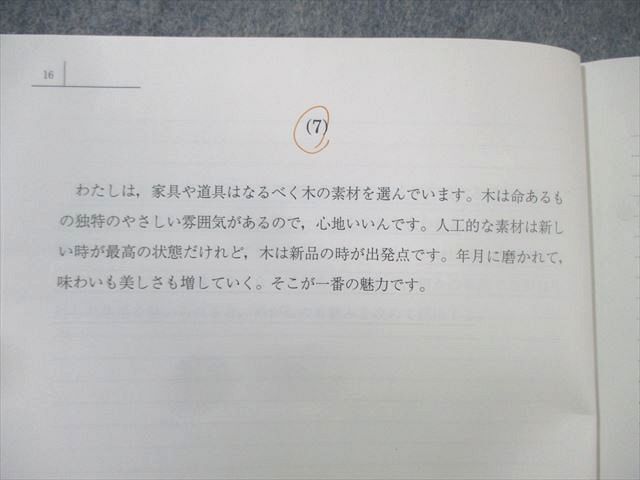 16
(7)
わたしは，家具や道具はなるべく木の素材を選んでいます。木は命あるも
の独特のやさしい雰囲気があるので，心地いいんです。人工的な素材は新し
い時が最高の状態だけれど，木は新品の時が出発点です。年月に磨かれて，
味わいも美しさも増していく。そこが一番の魅力です。